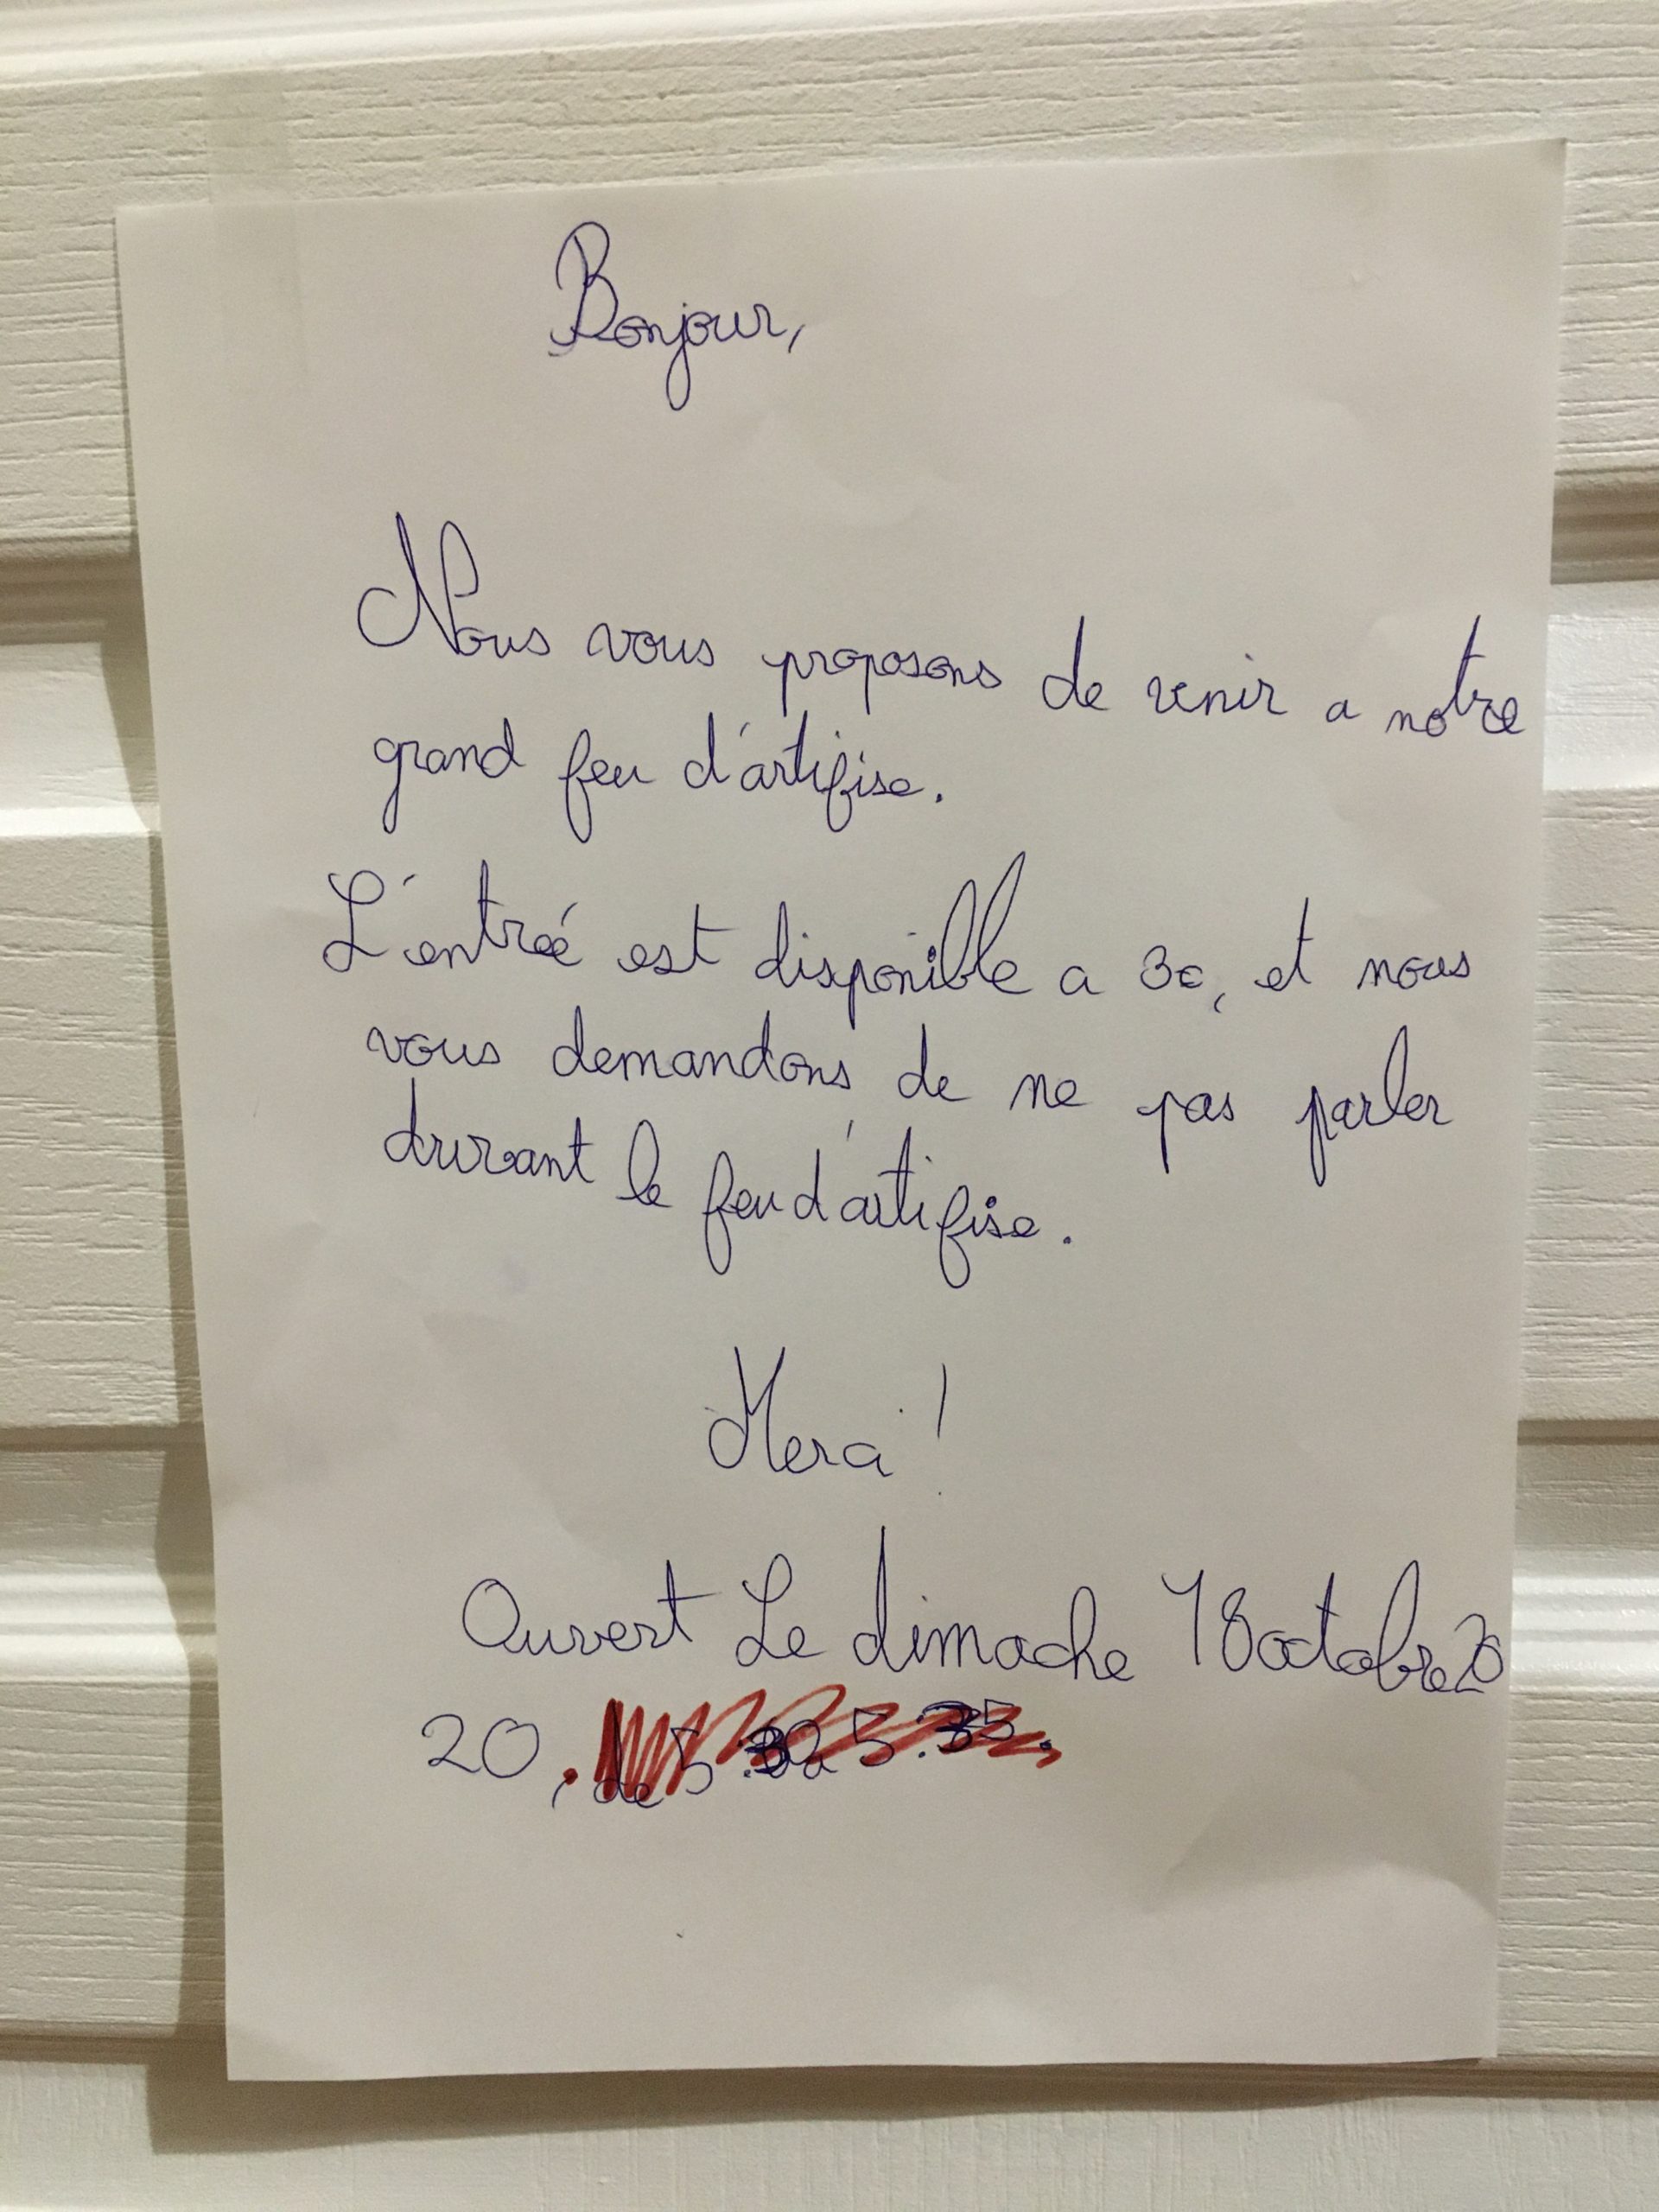 Bonjour,
Nous vous proposons de venir a notre
grand feu d'artifise.
L'entreé est disponible a 3€, et nous
vous demandons de ne pas parler
durant le feu d'artifise.
Merci !
Ouvert Le dimache 18 octobre 20
20, de 5:30 a 5:35.